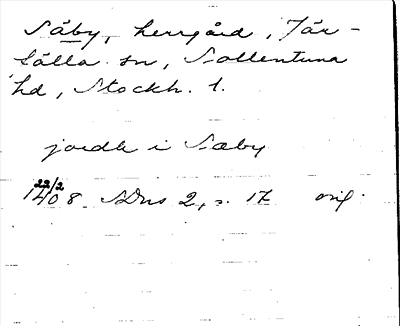 Säby, herrgård, Jär-
fälla sn, Sollentuna
hd, Stockh. l.
jordh i Sæby
22/2
1408. SDns 2, s. 17 orig.